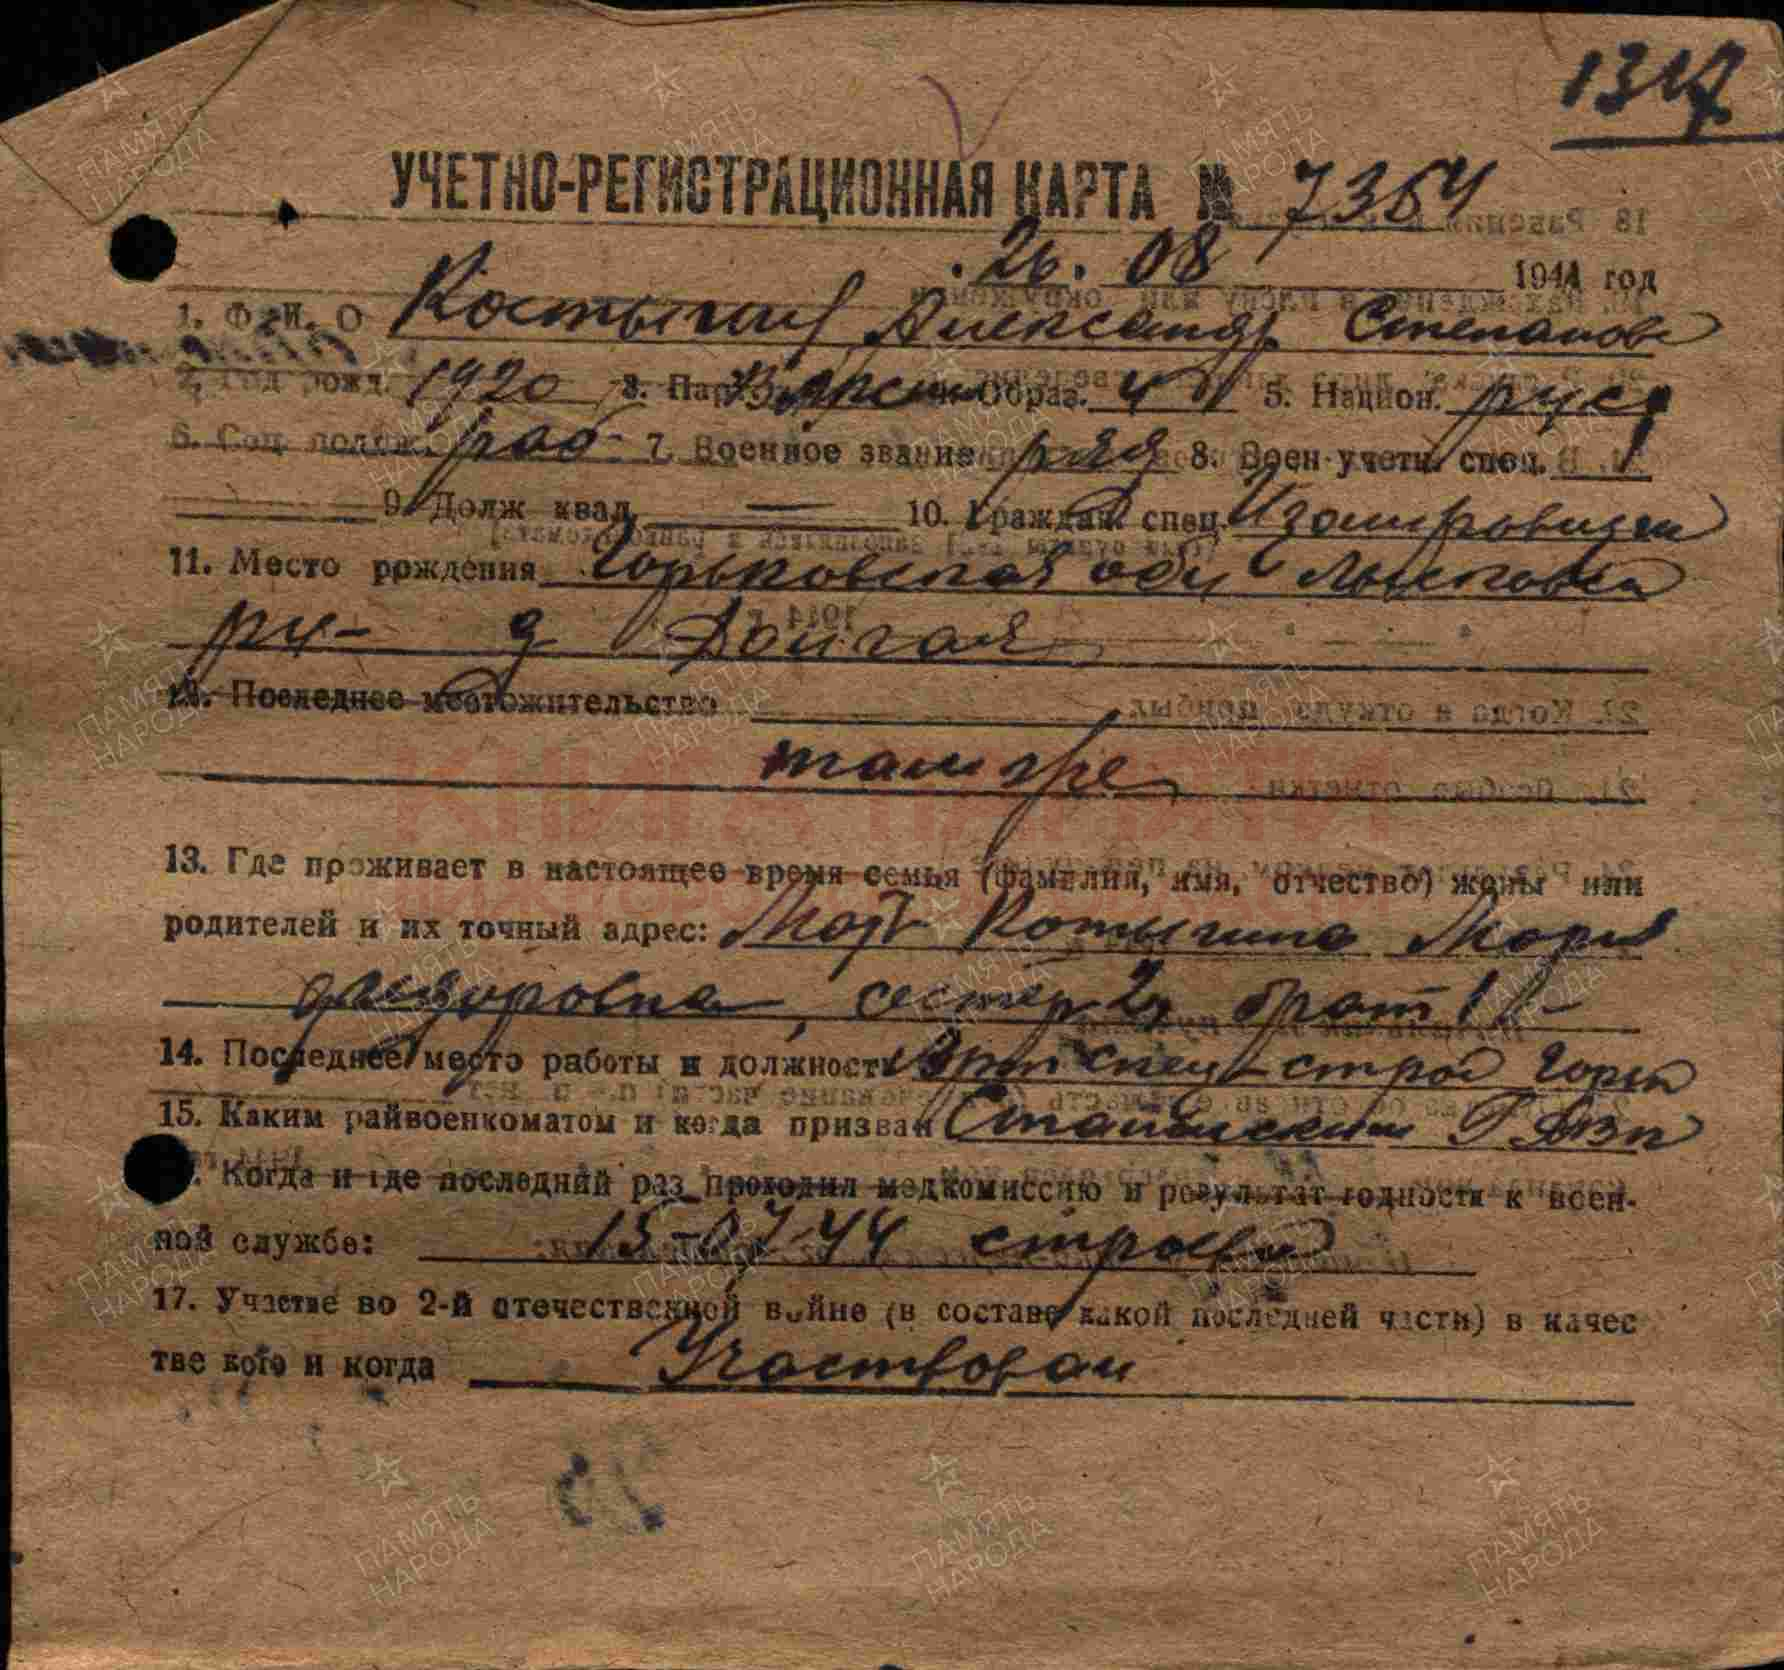 1317
УЧЕТНО-РЕГИСТРАЦИОННАЯ КАРТА № 7354
26. 08 1944 год
1. Ф. И. О Костыгин Александр Степанов
2. Год рожд. 1920 3. Парт. 4. Образ. 4 5. Национ. русс
6. Соц. полож. раб 7. Военное звание ряд 8. Воен-учетн. спец.
9. Долж квал. — 10. Граждан. спец.
11. Место рождения Горьковская обл
рн- д
12. Последнее местожительство
там же
13. Где проживает в настоящее время семья (фамилия, имя, отчество) жены или
родителей и их точный адрес: Мать Котыгина Мария
Федоровна, сестер 2, брат 1
14. Последнее место работы и должность строй
15. Каким райвоенкоматом и когда призван
Когда и где последний раз проходил медкомиссию и результат годности к воен-
ной службе: 15-07-44 строевой
17. Участие во 2-й отечественной войне (в составе какой последней части) в качес
тве кого и когда Участвовал
КНИГА ПАМЯТИ
ПАМЯТЬ НАРОДА